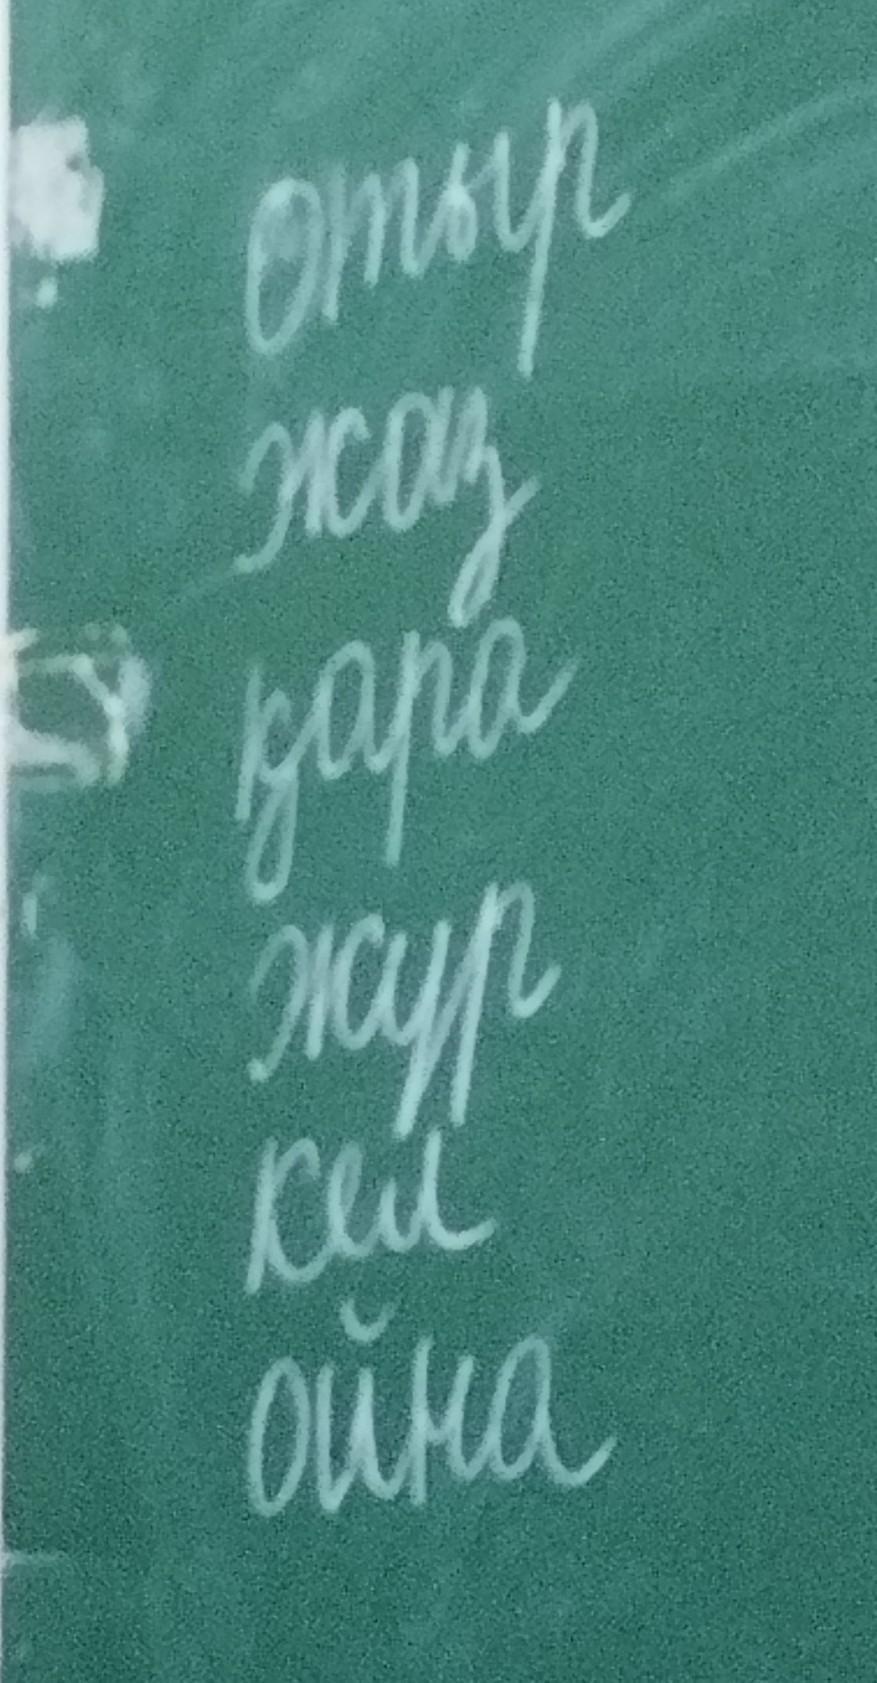 отыр
жаз
қара
жүр
кел
ойна